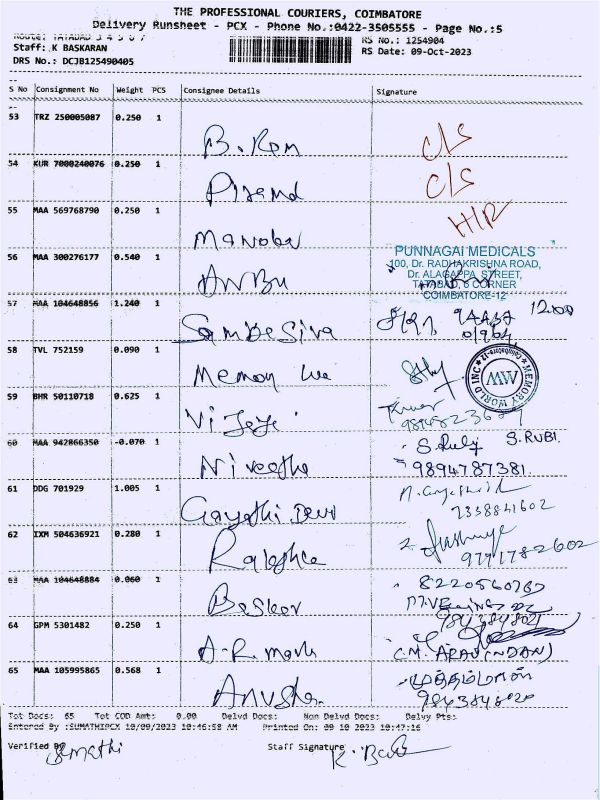 THE PROFESSIONAL COURIERS, COIMBATORE
Delivery Runsheet - PCX - Phone No.:0422-3505555 - Page No.:5
Staff: K BASKARAN RS No.: 1254904
DRS No.: DCJB125490405 RS Date: 09-Oct-2023
S No Consignment No Weight PCS Consignee Details Signature
53 TRZ 250005087 0.250 1
B. Ram C/S
54 KUR 7000240076 0.250 1
C/S
55 MAA 569768790 0.250 1
Manober
56 MAA 300276177 0.540 1
PUNNAGAI MEDICALS
100, Dr. RADHAKRISHNA ROAD,
Dr. ALAGAPPA STREET,
TATABAD, 6 CORNER
COIMBATORE-12
ANBU
57 MAA 104648856 1.240 1
Sambesiva
58 TVL 752159 0.090 1
MEMORY WORLD INC * Coimbatore-12 *
MW
59 BHR 50110718 0.625 1
60 MAA 942866350 -0.070 1
S. Ruby S. RUBI.
Nivedha 9894787381.
61 DDG 701929 1.005 1
Gayathi Devi 7338841602
62 IXM 504636921 0.280 1
9771782602
63 MAA 104648884 0.060 1
8220560787
Basker
64 GPM 5301482 0.250 1
A.R. mark C.M. ARAVINDAN)
65 MAA 105995865 0.568 1
முத்தம்மாள்
Anusha
Tot Docs: 65 Tot COD Amt: 0.00 Delvd Docs: Non Delvd Docs: Delvy Pts:
Entered By :SUMATHIPCX 10/09/2023 10:46:58 AM Printed On: 09 10 2023 10:47:16
Verified By Sumathi Staff Signature